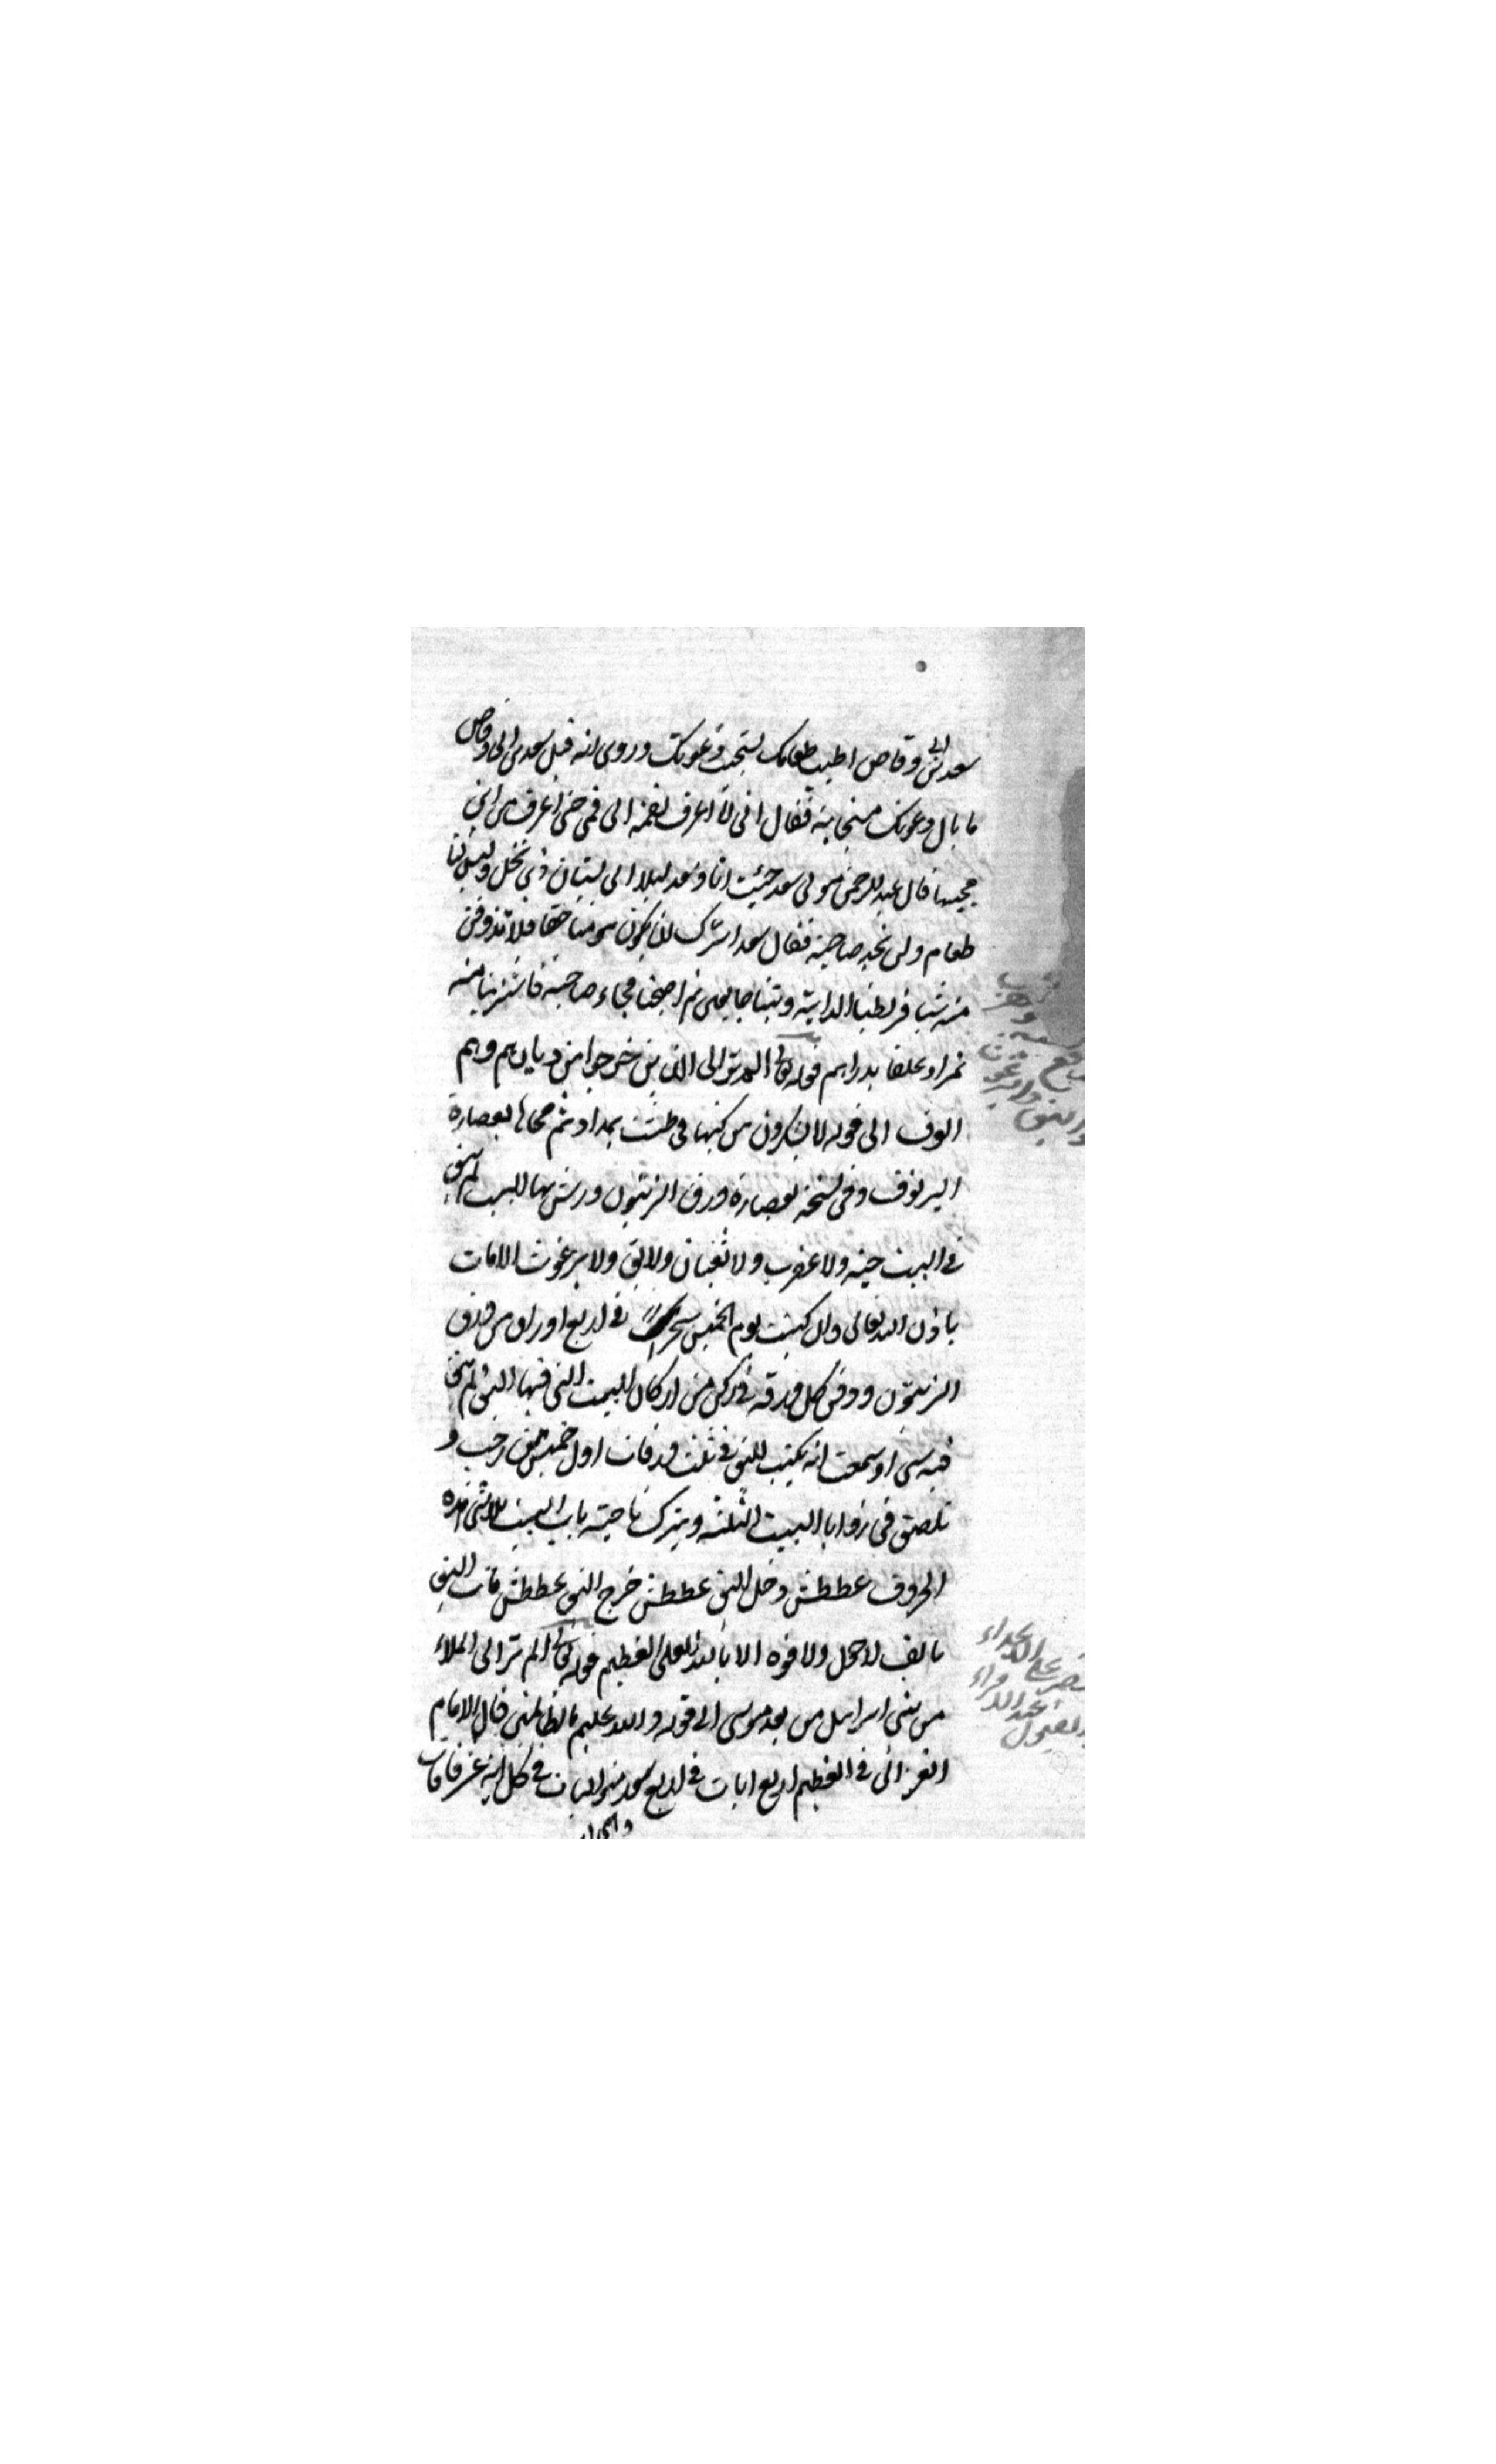 سعد بن ابى وقاص اطيب طعامك تستجب دعوتك وروى انه قيل لسعد بن ابى وقاص
ما بال دعوتك مستجابة فقال انى لا ارفع لقمة الى فمى حتى اعرف من اين
مجيبها قال عبد الرحمن مولى سعد جئت انا وسعد ليلا الى بستان فى نخل وليس لنا
طعام ولم نجد صاحبه فقال سعد ان سرك ان تكون مومنا حقا فلا تذوقن
منه شيا فربطنا الدابة وبتنا جايعين ثم اصبحنا فجاء صاحبه فاشترينا منه
تمرا وعلفا بدراهم قوله تعالى الم تر الى الذين خرجوا من ديارهم وهم
الوف الى قوله لا يشكرون من كتبها فى طشت بمداد ثم محاها بعصارة
البرنوف وفى نسخة بعصارة ورق الزيتون ورش بها البيت لم يبق
فى البيت حية ولا عقرب ولا ثعبان ولا بق ولا برغوث الا مات
باذن الله تعالى وان كتبت يوم الخميس سحرا فى اربع اوراق من ورق
الزيتون ودفن كل ورقة فى ركن من اركان البيت التى فيها البق لم يبق
فيه شى وسمعت انه يكتب للبق فى ثلث ورقات اول خميس من رجب و
تلصق فى زوايا البيت الثلثة ويترك ناحية باب البيت بلا شى هذه
الحروف عططش دخل البق عططش خرج البق عططش مات البق
بالف لا حول ولا قوه الا بالله العلى العظيم قوله تعالى الم تر الى الملاء
من بنى اسرايل من بعد موسى الى قوله والله عليم بالظالمين قال الامام
الغزالى فى العظيم اربع ايات فى اربع سور متواليات فى كل اية عشر قافات